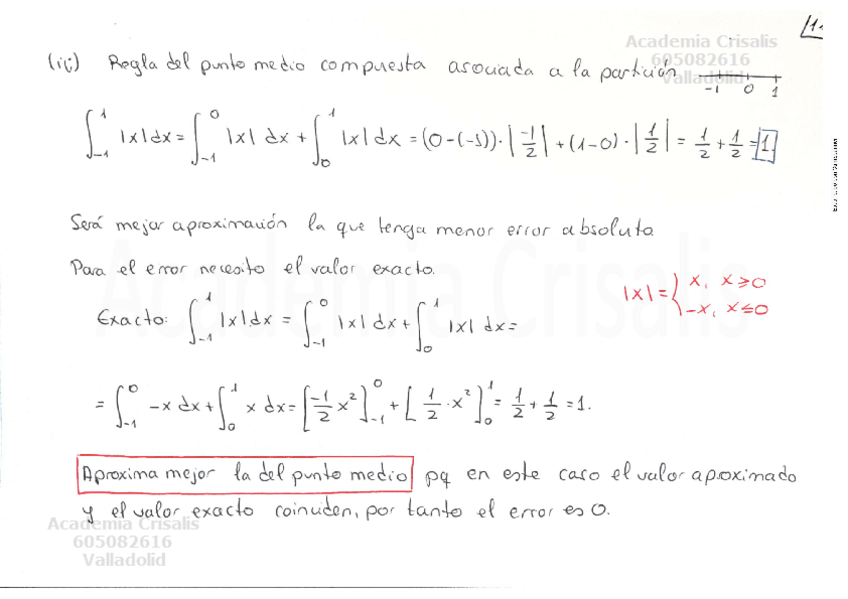 11
Academia Crisalis
605082616
Valladolid
(ii) Regla del punto medio compuesta asociada a la partición
-1 0 1
∫_{-1}^{1} |x| dx = ∫_{-1}^{0} |x| dx + ∫_{0}^{1} |x| dx = (0-(-1))·|-1/2| + (1-0)·|1/2| = 1/2 + 1/2 = 1
Será mejor aproximación la que tenga menor error absoluto
Para el error necesito el valor exacto.
|x| = { x, x ≥ 0
-x, x ≤ 0
Exacto: ∫_{-1}^{1} |x| dx = ∫_{-1}^{0} |x| dx + ∫_{0}^{1} |x| dx =
= ∫_{-1}^{0} -x dx + ∫_{0}^{1} x dx = [-1/2 x²]_{-1}^{0} + [1/2 · x²]_{0}^{1} = 1/2 + 1/2 = 1.
Aproxima mejor la del punto medio pq en este caso el valor aproximado
y el valor exacto coinciden, por tanto el error es 0.
Academia Crisalis
605082616
Valladolid
Academia Crisalis